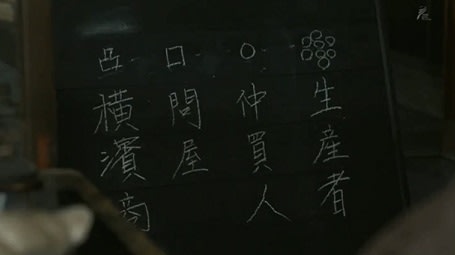 生産者
仲買人
問屋
横濱商